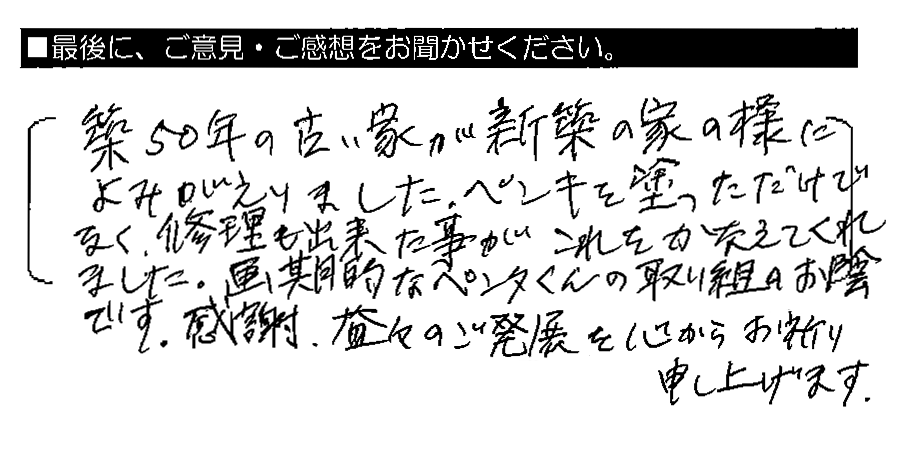 ■最後に、ご意見・ご感想をお聞かせください。
築50年の古い家が新築の家の様に
よみがえりました。ペンキを塗っただけで
なく、修理も出来た事がこれをかなえてくれ
ました。画期的なペンタくんの取り組のお陰
です。感謝、益々のご発展を心からお祈り
申し上げます。